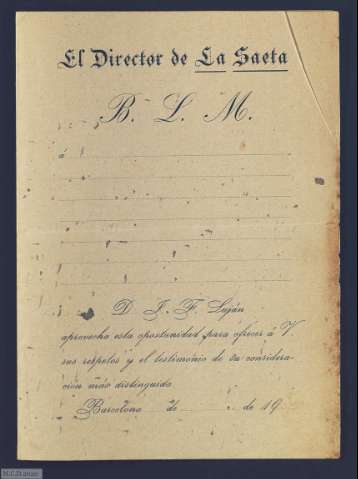 El Director de La Saeta
B. L. M.
á
D. J. F. Luján
aprovecha esta oportunidad para ofrecer á V.
sus respetos y el testimonio de su considera-
ción más distinguida.
Barcelona de de 19